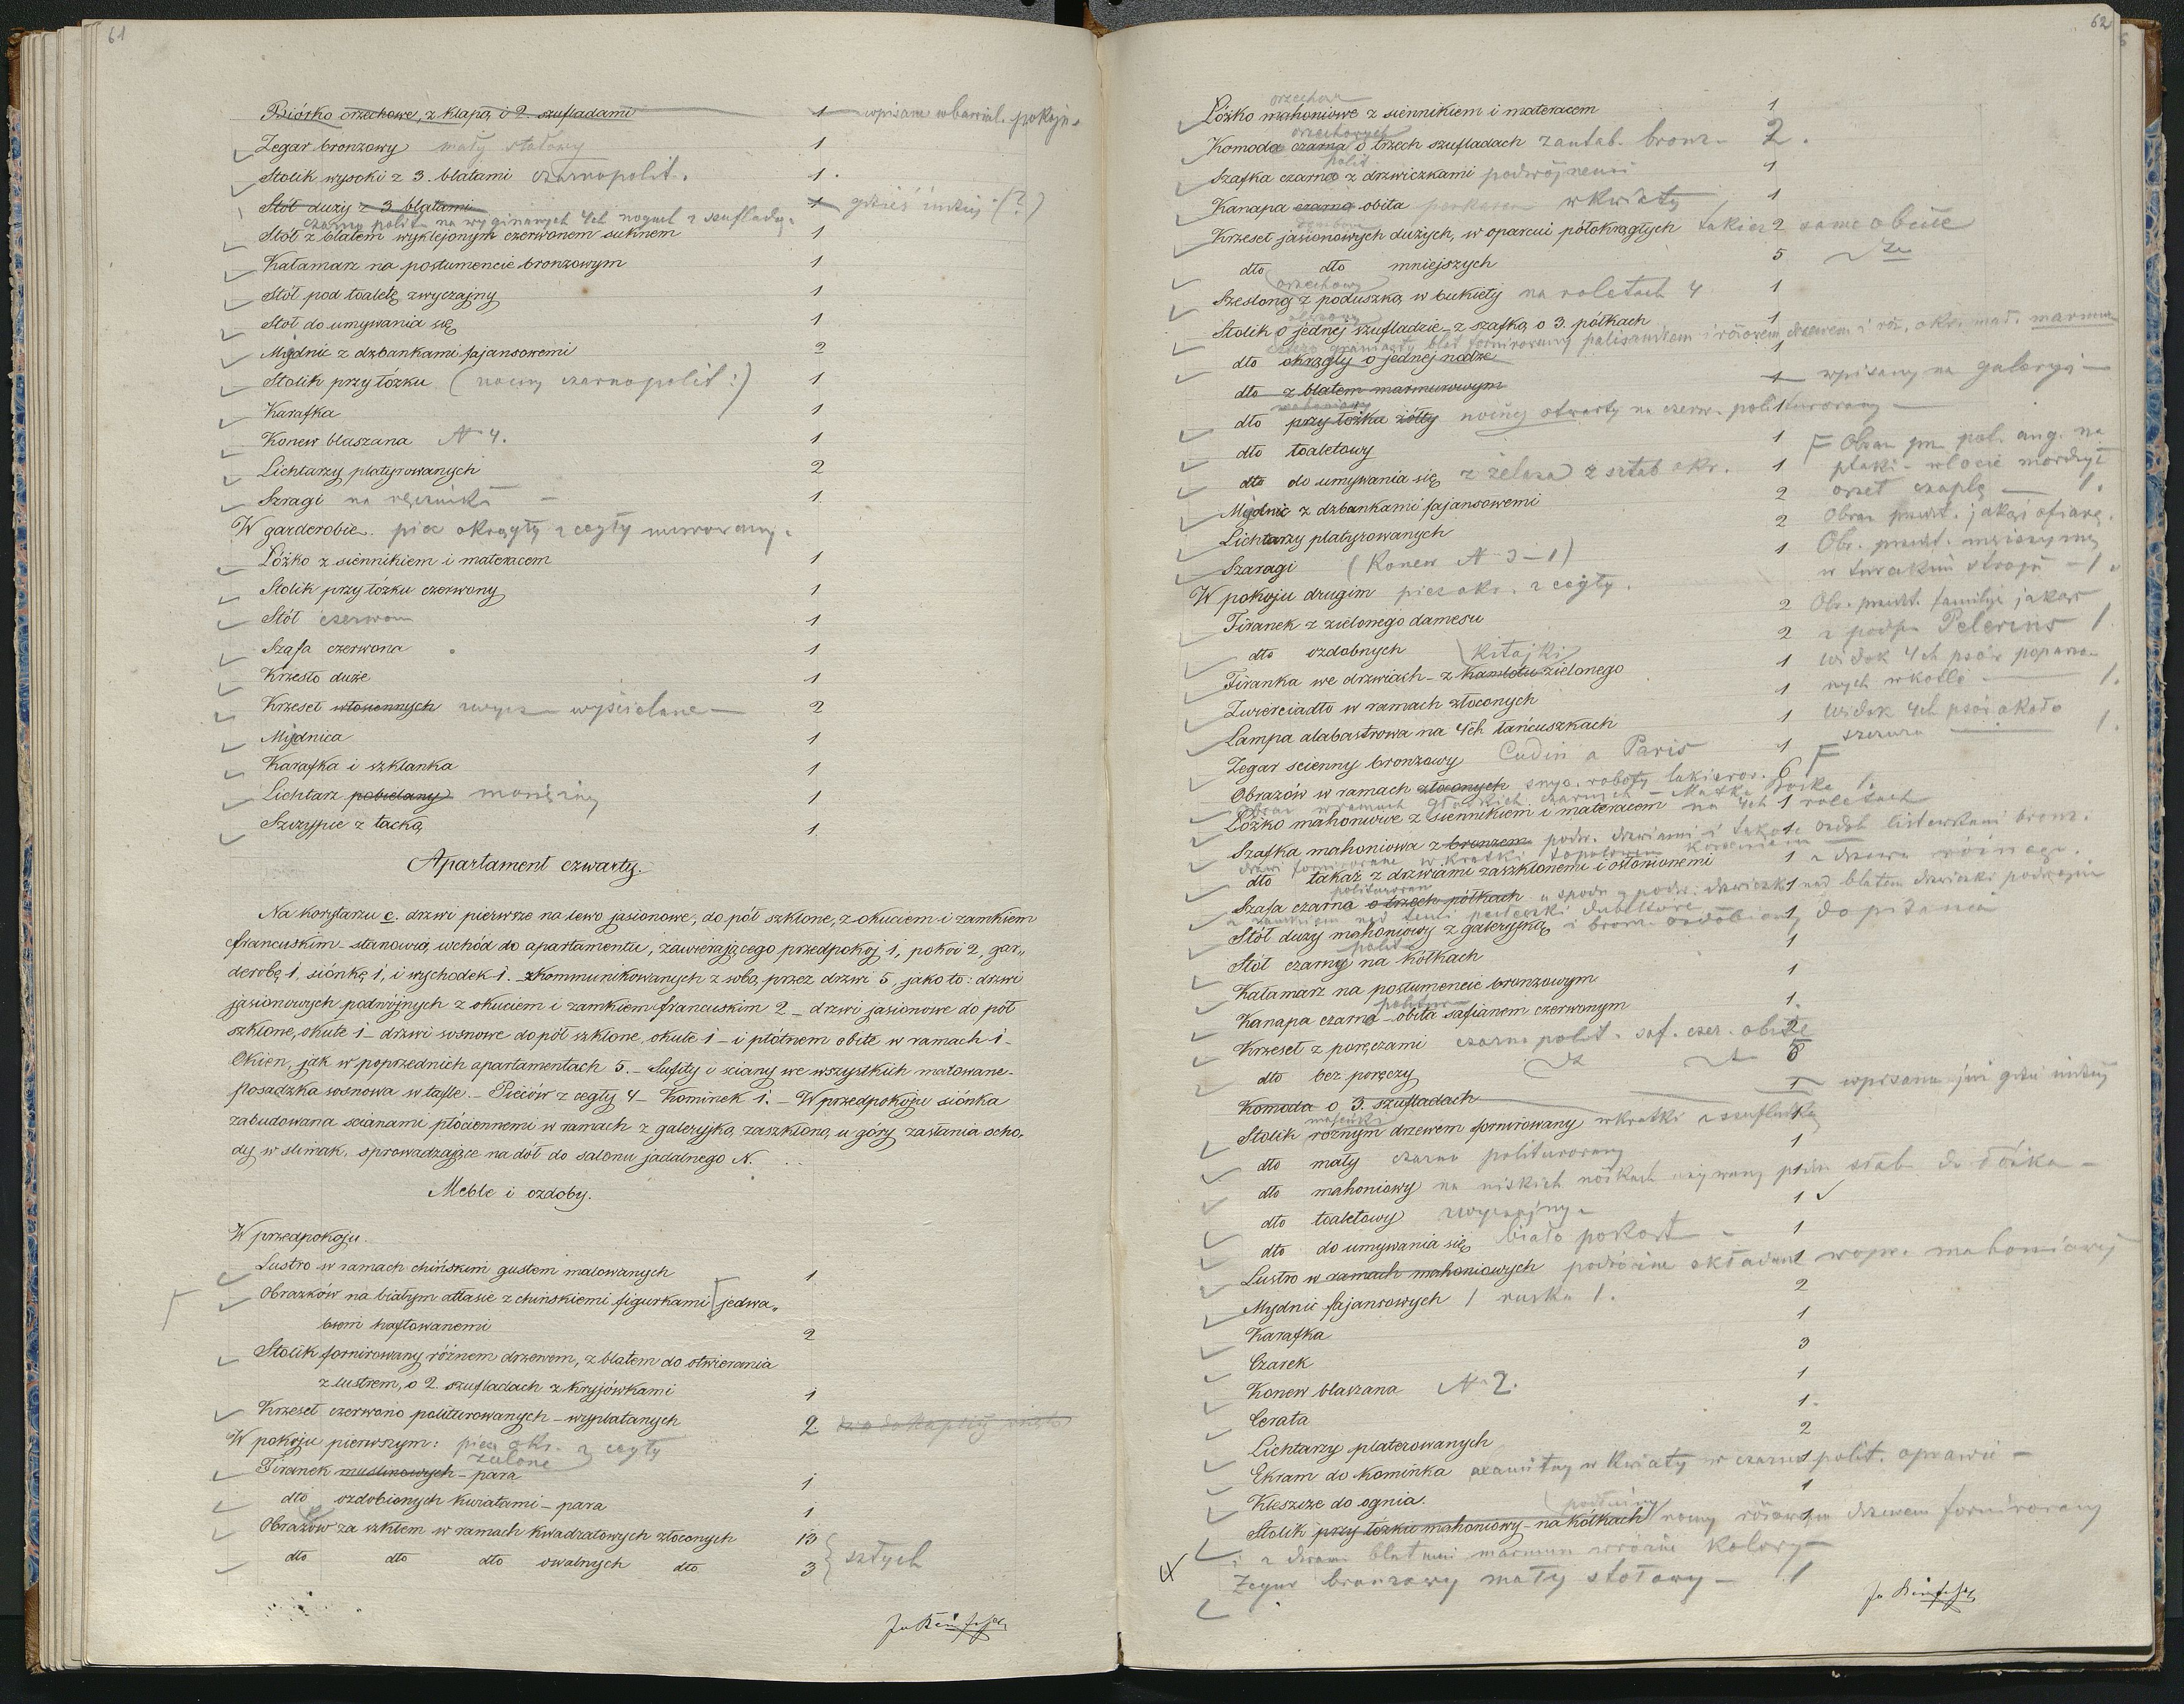 61
Biórko orzechowe, z klapą, i 2. szufladami 1 wpisane w bawial. pokoju
Zegar bronzowy mały stołowy 1
Stolik wysoki z 3. blatami czarno polit. 1.
Stół duży z 3 blatami 1 gdzieś indziej (?)
czarno polit. na wyginanych 4ch nogach z szufladą
Stół z blatem wyklejonym czerwonem suknem 1
Kałamarz na postumencie bronzowym 1
Stół pod toaletę zwyczajny 1
Stół do umywania się 1
Mydnic z dzbankami fajansowemi 2
Stolik przy łóżku (nocny czarno polit:) 1
Karafka 1
Konew blaszana N 4. 1
Lichtarzy platyrowanych 2
Szragi na ręczniki 1.
W garderobie. piec okrągły z cegły murowany.
Łóżko z siennikiem i materacem 1
Stolik przy łóżku czerwony 1
Stół czerwony 1
Szafa czerwona 1
Krzesło duże 1
Krzeseł włosiennych zwycz. wyścielane 2
Mydnica 1
Karafka i szklanka 1
Lichtarz pobielany mosiężny 1
Szczypce z tacką 1.
Apartament czwarty.
Na korytarzu c. drzwi pierwsze na lewo jasionowe, do pół szklone, z okuciem i zamkiem
francuskim - stanowią wchód do apartamentu, zawierającego przedpokoj 1, pokoi 2, gar„
derobę 1, siónkę 1, i wychodek 1. - zkommunikowanych z sobą, przez drzwi 5, jako to: drzwi
jasionowych podwójnych z okuciem i zamkiem francuskim 2 - drzwi jasionowe do pół
szklone, okute 1 - drzwi sosnowe do pół szklone, okute 1 - i płótnem obite w ramach 1 -
Okien, jak w poprzednich apartamentach 5. - Sufity i sciany we wszystkich malowane -
posadzka sosnowa w tafle. - Pieców z cegły 4 - Kominek 1. - W przedpokoju siónka
zabudowana scianami płóciennemi w ramach z galeryjką zaszkloną, u góry zasłania scho„
dy w slimak, sprowadzające na dół do salonu jadalnego N. . .
Meble i ozdoby.
W przedpokoju.
Lustro w ramach chińskim gustem malowanych 1
Obrazków na białym atłasie z chińskiemi figurkami jedwa„
biem haftowanemi 2
Stolik fornirowany różnem drzewem, z blatem do otwierania
z lustrem, o 2. szufladach z kryjówkami 1
Krzeseł czerwono politurowanych - wyplatanych 2. do kaplicy wzięto
W pokoju pierwszym: piec okr. z cegły
zielone
Firanek muslinowych - para 1
dto ozdobionych kwiatami - para 1
Obrazów za szkłem w ramach kwadratowych złoconych 13
dto dto dto owalnych dto 3 sztych
62
orzechowe
Łóżko mahoniowe z siennikiem i materacem 1
orzechowych
Komoda czarna o trzech szufladach z antab. bronz. 2.
polit.
Szafka czarna z drzwiczkami podwójnemi 1
Kanapa czarna obita w kwiaty 1
Krzeseł jasionowych dużych, w oparciu półokrągłych takież 2 same obicie
dto dto mniejszych 5 dto
orzechowy
Szeslong z poduszką, w bukiety na roletach 4 1
Stolik o jednej szufladzie - z szafką o 3. półkach 1
graniasty blat fornirowany palisandrem i różowem drzewem i marmur
dto okrągły o jednej nodze 1
dto z blatem marmurowym 1 wpisany na galeryi
mahoniowy
dto przy łóżku żółty nocny otwarty na czerw. politurowany 1
dto toaletowy 1
dto do umywania się z żelaza z sztab okr. 1
Mydnic z dzbankami fajansowemi 2
Lichtarzy platyrowanych 2
Szaragi (Konew N 3 - 1) 1
Obraz pol. ang. na
ptaki - w locie morduje
orzeł czaplę 1.
Obraz przedst. jakąś ofiarę.
Obr. przedst. mężczyznę
w tureckim stroju - 1.
W pokoju drugim piec okr. z cegły.
Obr. przedst. familję jakąś
Firanek z zielonego damesu 2
z podp. Pelerins 1.
dto ozdobnych 2
kitajki
Widok 4ch psów poparzo-
Firanka we drzwiach - z kamlotu zielonego 1
nych w kotle 1.
Zwierciadło w ramach złoconych 1
Widok 4ch psów około
Lampa alabastrowa na 4ch łańcuszkach 1
szczura 1.
Zegar scienny bronzowy Cudin a Paris 1
Obrazów w ramach złoconych snyc. roboty lakierow. 6
Obraz w ramach gładkich czarnych - Matka Boska 1.
Łóżko mahoniowe z siennikiem i materacem na 4ch roletach 1
Szafka mahoniowa z bronzem podw. drzwiami i takoż ozdob listewkami bronz. 1
drzwi fornirowane w kratki topolowem korzeniem
dto takaż z drzwiami zaszklonemi i osłonionemi 1 z drzewa różnego.
politurowan
Szafa czarna o trzech półkach u spodu z podw. drzwiczk. nad blatem drzwiczki podwójne 1
z zamkiem nad temi półeczki
Stół duży mahoniowy z galeryjką i bronz. ozdobiony do pisania 1
polit.
Stół czarny na kółkach 1
Kałamarz na postumencie bronzowym 1
politur
Kanapa czarna - obita safianem czerwonym 1.
Krzeseł z poręczami czarno polit. saf. czer. obite 2
dto bez poręczy dto dto 8
Komoda o 3. szufladach 1 wpisana już gdzie indziej
maleńki
Stolik różnym drzewem fornirowany w kratki z szufladką 1
dto mały czarno politurowany 1
dto mahoniowy na niskich nóżkach używany 1 do łóżka -
dto toaletowy zwyczajny 1
dto do umywania się biało pokost 1
Lustro w ramach mahoniowych podróżne składane w opr. mahoniowej 1
Mydnic fajansowych 1 ruska 1. 2
Karafka 1
Czarek 3
Konew blaszana N 2. 1
Cerata 1.
Lichtarzy platerowanych 2
Ekram do kominka axamitny w kwiaty w czarno polit. oprawie - 1
Kleszcze do ognia. 1
podłużny
Stolik przy łóżku mahoniowy - na kółkach nocny różowem drzewem fornirowany 1
i z dwoma blatami marmur. w różne kolory
Zegar bronzowy mały stołowy - 1